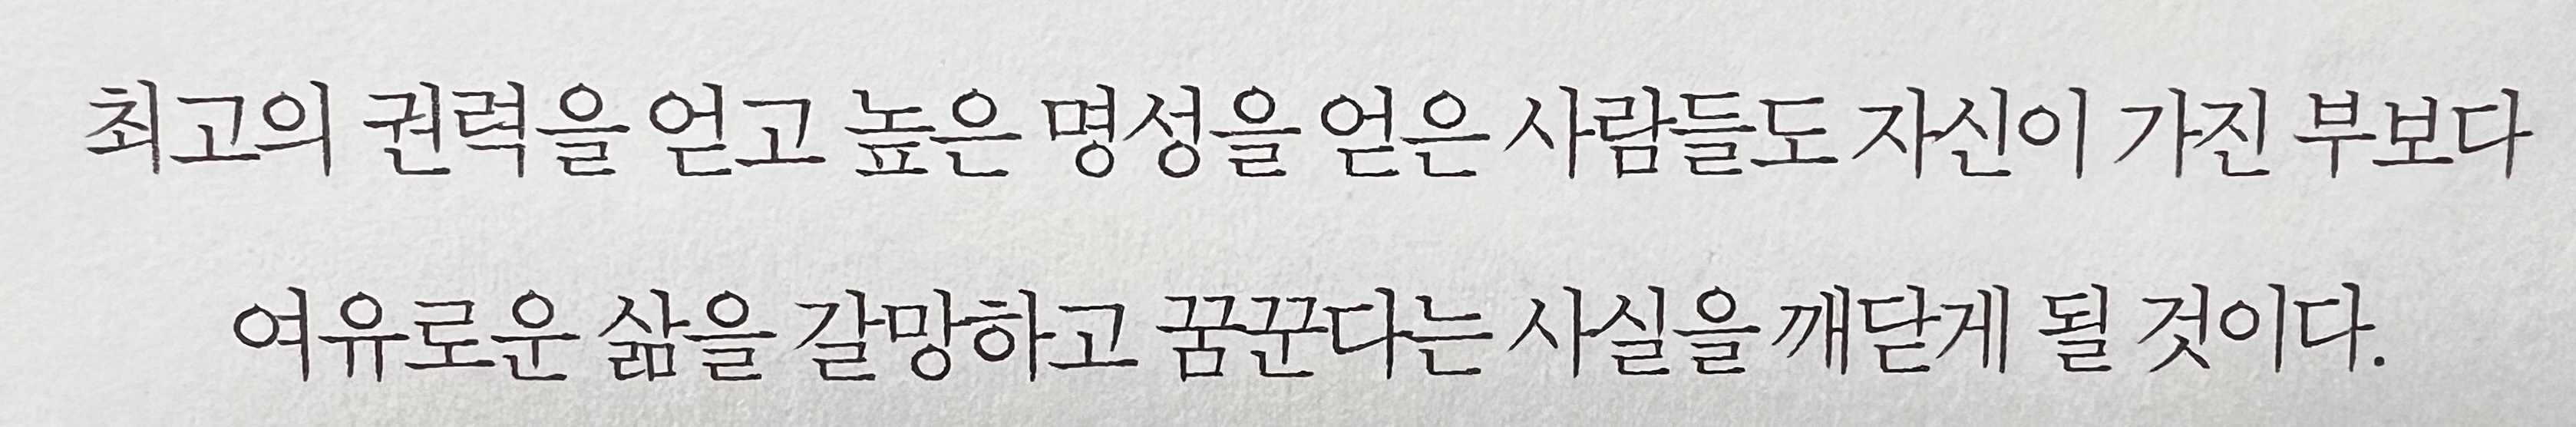 최고의 권력을 얻고 높은 명성을 얻은 사람들도 자신이 가진 부보다
여유로운 삶을 갈망하고 꿈꾼다는 사실을 깨닫게 될 것이다.